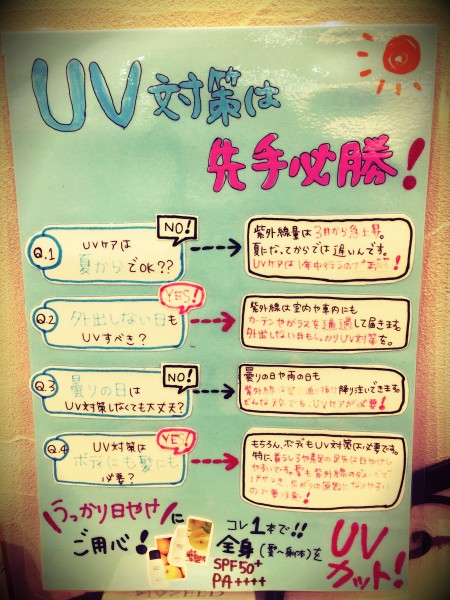 UV対策は
先手必勝!
Q.1
UVケアは
夏からでOK??
NO!
紫外線量は3月から急上昇。
夏になってからでは遅いんです。
UVケアは1年中行うの
Q.2
外出しない日も
UVすべき?
YES!
紫外線は室内や車内にも
カーテンやガラスを通過して届きます。
外出しない日もしっかりUV対策を。
Q.3
曇りの日は
UV対策しなくても大丈夫?
NO!
曇りの日や雨の日も
紫外線は 降り注いできます。
UVケアが必要!
Q.4
UV対策は
ボディにも髪にも
必要?
YES!
もちろん、ボディもUV対策は必要です。
特に、 日やけし
やすいです。髪も紫外線のダメージで
の原因になりやすい
ので要注意!
うっかり日やけに
ご用心!
コレ1本で!!
全身(髪〜身体)を
SPF50+
PA++++
UV
カット!